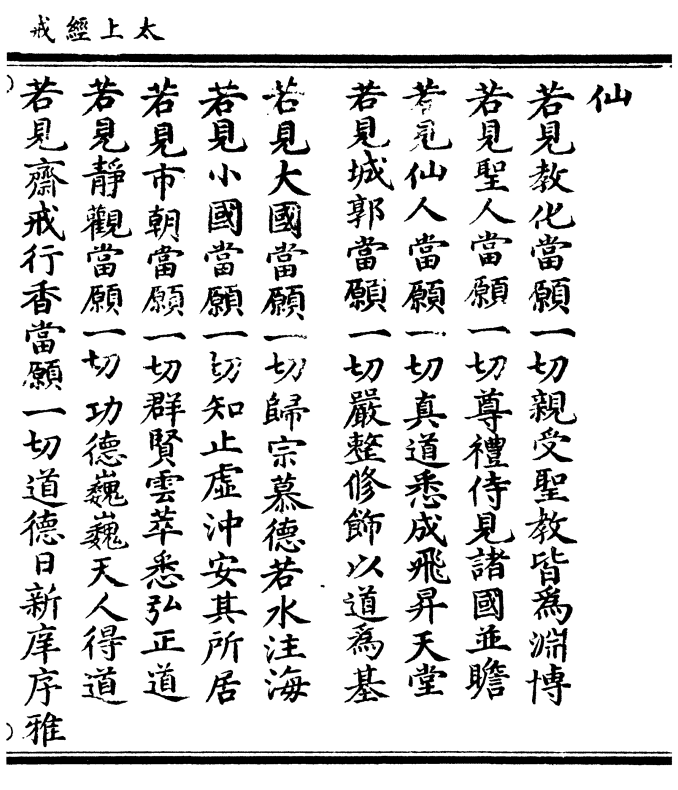 太上經戒
仙
若見教化當願一切親受聖教皆為淵博
若見聖人當願一切尊禮侍見諸國並瞻
若見仙人當願一切真道悉成飛昇天堂
若見城郭當願一切嚴整修飾以道為基
若見大國當願一切歸宗慕德若水注海
若見小國當願一切知止虛沖安其所居
若見市朝當願一切群賢雲萃悉弘正道
若見靜觀當願一切功德巍巍天人得道
若見齋戒行香當願一切道德日新庠序雅